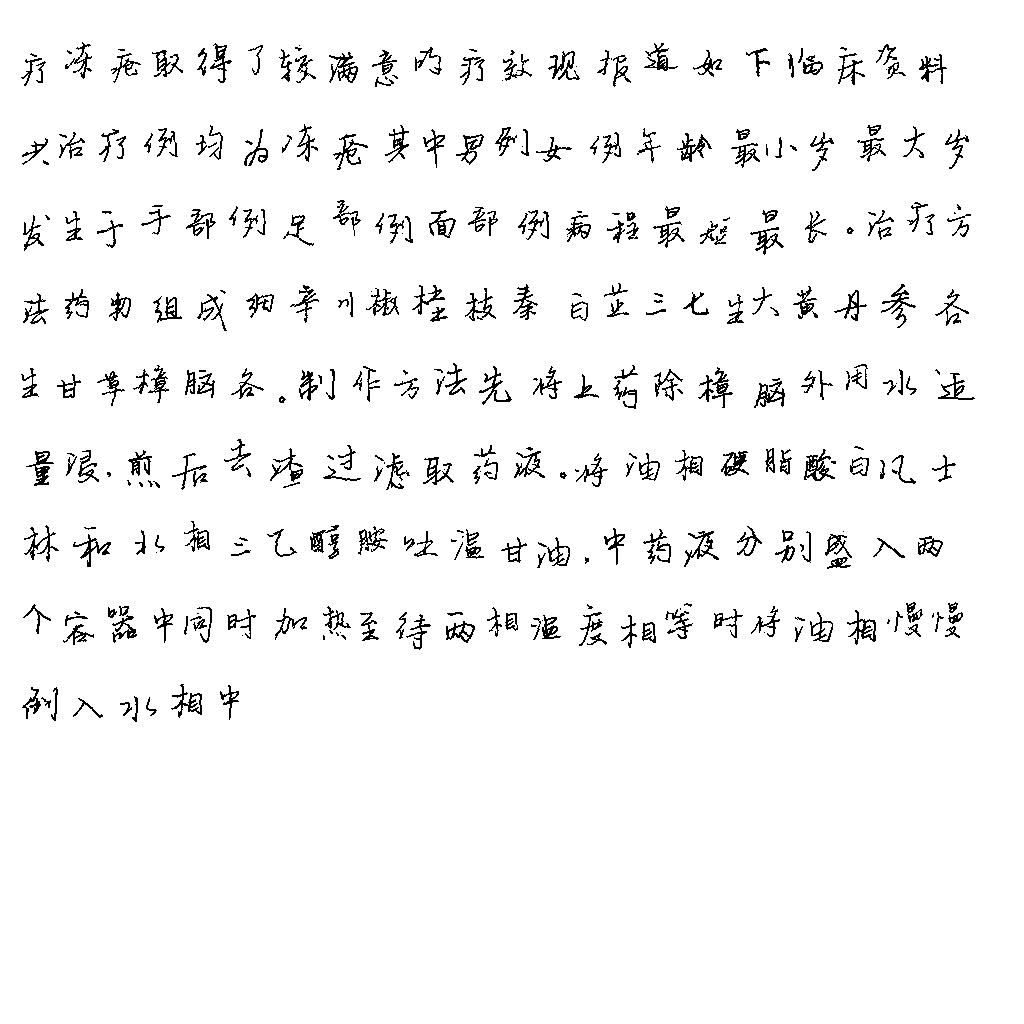 疗冻疮取得了较满意的疗效现报道如下临床资料
共治疗例均为冻疮其中男例女例年龄最小岁最大岁
发生于手部例足部例面部例病程最短最长。治疗方
法药物组成细辛川椒桂枝秦白芷三七生大黄丹参各
生甘草樟脑各。制作方法先将上药除樟脑外用水适
量浸，煎后去渣过滤取药液。将油相硬脂酸白凡士
林和水相三乙醇胺吐温甘油，中药液分别盛入两
个容器中同时加热至待两相温度相等时将油相慢慢
倒入水相中